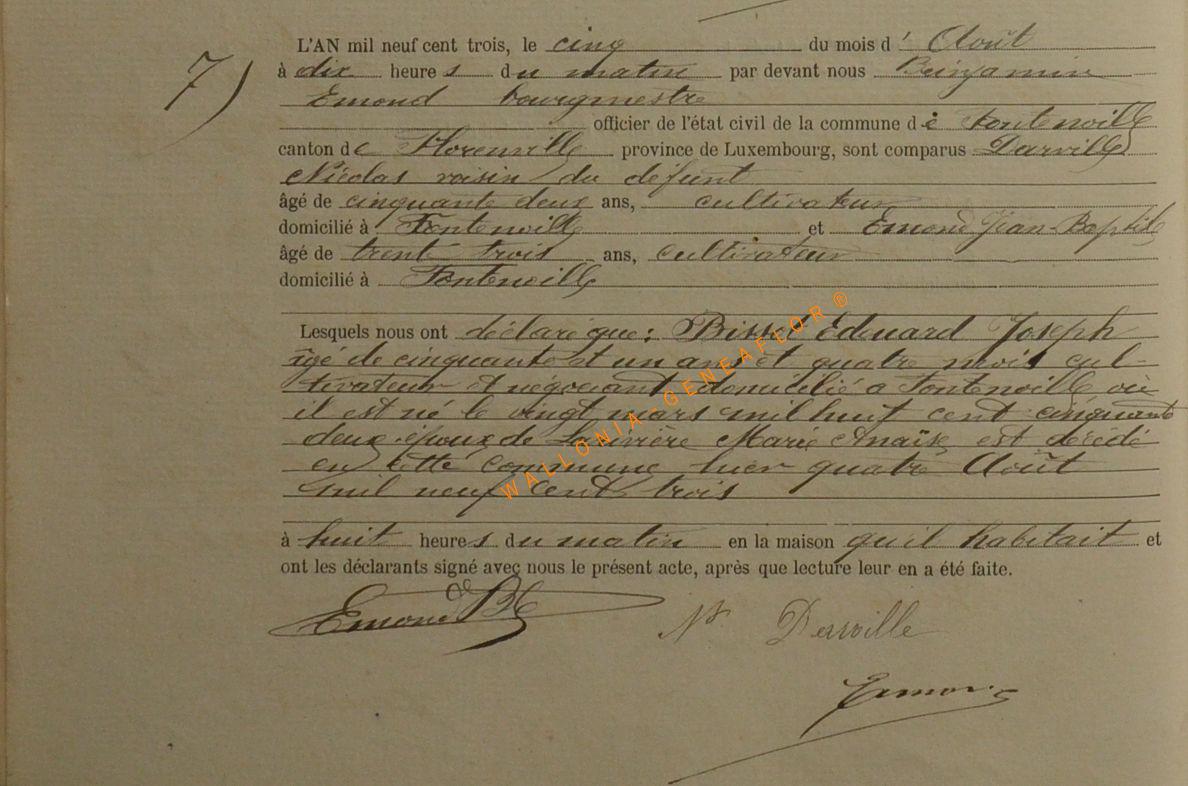 7)
L'AN mil neuf cent trois, le cinq du mois d' Août
à dix heures du matin par devant nous Benjamin
Emond bourgmestre
officier de l'état civil de la commune de Fontenoille
canton de Florenville province de Luxembourg, sont comparus Derville
Nicolas voisin du défunt
âgé de cinquante deux ans, cultivateur
domicilié à Fontenoille et Emond Jean-Baptiste
âgé de trente trois ans, cultivateur
domicilié à Fontenoille
Lesquels nous ont déclaré que: Edouard Joseph
âgé de cinquante et un ans et quatre mois cul-
tivateur et négociant domicilié à Fontenoille où
il est né le vingt mars mil huit cent cinquante
deux époux de Marie Anaïse est décédé
en cette commune hier quatre Août
mil neuf cent trois
à huit heures du matin en la maison qu'il habitait et
ont les déclarants signé avec nous le présent acte, après que lecture leur en a été faite.
Emond JB Ns Derville
Emond
WALLONIA-GENEAFLOR ®